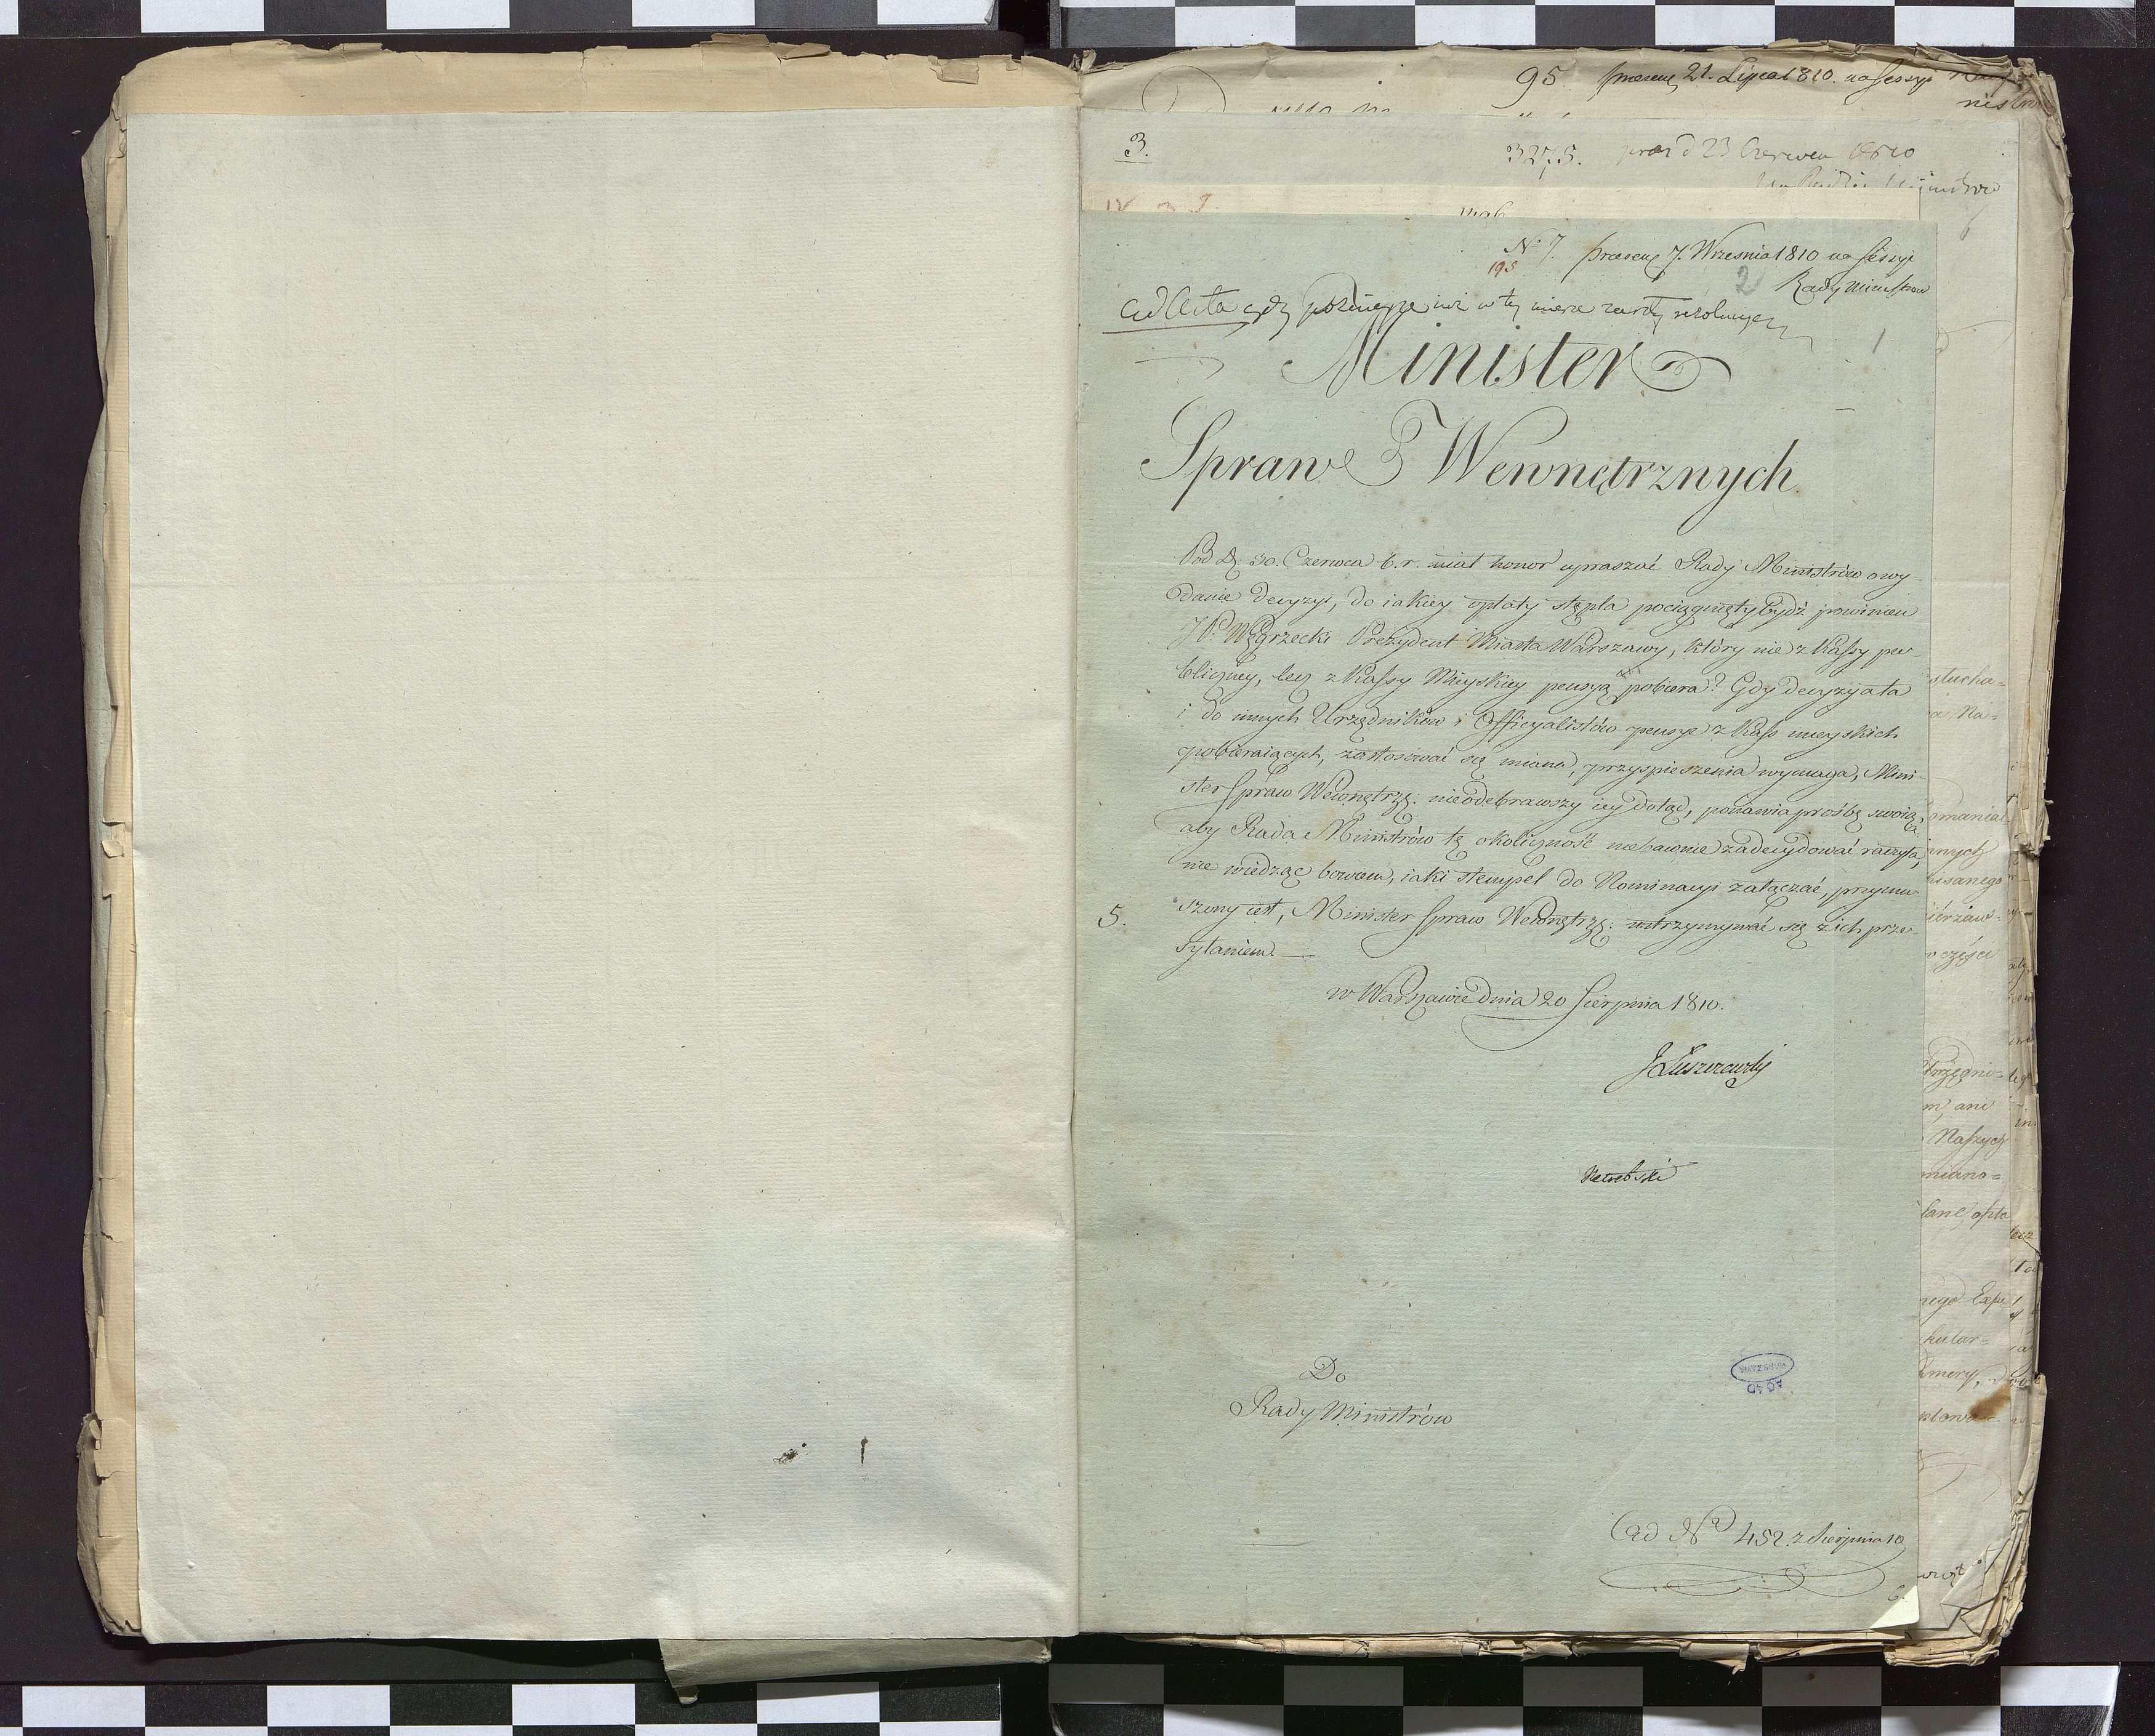 95 praesent 21. Lipca 1810. na Sessyi Rady
3.
3275. praes d 23 Czerwca 1810
No 7. praesent 7. Września 1810 na Sessyi
193
2 Rady Ministrow
ad Acta gdy później już w tej mierze rezolucye
1
Minister
Spraw Wewnętrznych
Pod d. 30. Czerwca b. r. miał honor upraszać Rady Ministrów o wy-
danie decyzyi, do iakiey opłaty stępla pociągnięty bydź powinien
JP. Węgrzecki Prezydent Miasta Warszawy, który nie z Kassy pu-
bliczney, lecz z Kassy Mieyskiey pensyą pobiera? Gdy decyzyia ta
i do innych Urzędników i Officyalistów pensye z Kass mieyskich
pobieraiących, zastosować się miana, przyspieszenia wymaga, Mini-
ster Spraw Wewnętrz. nieodebrawszy iey dotąd, ponawia prośbę swoią,
aby Rada Ministrów tę okoliczność niebawnie zadecydować raczyła,
nie wiedząc bowiem, iaki stempel do Nominacyi załączać, przymu-
5. szony iest, Minister Spraw Wewnętrz: wstrzymywać się z ich prze-
syłaniem.
w Warszawie dnia 20 Sierpnia 1810.
J Łuszczewski
Do
Rady Ministrów
AGAD
WARSZAWA
ad No 452. z Sierpnia 10
6.